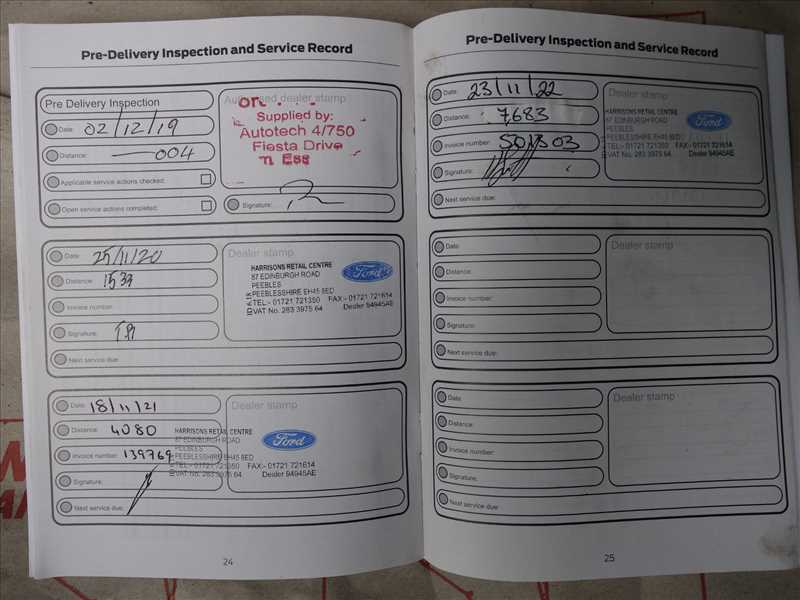 Pre-Delivery Inspection and Service Record
Pre Delivery Inspection
Date: 02/12/19
Distance: 004
Applicable service actions checked:
Open service actions completed:
dealer stamp
Supplied by:
Autotech 4/750
Fiesta Drive
Signature:
Date: 25/11/20
Distance: 1533
Invoice number:
Signature:
Next service due:
Dealer stamp
HARRISONS RETAIL CENTRE
87 EDINBURGH ROAD
PEEBLES
PEEBLESSHIRE EH45 8ED
TEL:- 01721 721350 FAX:- 01721 721614
VAT No. 283 3975 64 Dealer 94945AE
Ford
Date: 18/11/21
Distance: 4080
Invoice number: 139769
Signature:
Next service due:
Dealer stamp
HARRISONS RETAIL CENTRE
87 EDINBURGH ROAD
PEEBLES
PEEBLESSHIRE EH45 8ED
TEL:- 01721 721350 FAX:- 01721 721614
VAT No. 283 3975 64 Dealer 94945AE
Ford
24
Pre-Delivery Inspection and Service Record
Date: 23/11/22
Distance: 7,683
Invoice number: 501303
Signature:
Next service due:
Dealer stamp
HARRISONS RETAIL CENTRE
87 EDINBURGH ROAD
PEEBLES
PEEBLESSHIRE EH45 8ED
TEL:- 01721 721350 FAX:- 01721 721614
VAT No. 283 3975 64 Dealer 94945AE
Ford
Date:
Distance:
Invoice number:
Signature:
Next service due:
Dealer stamp
Date:
Distance:
Invoice number:
Signature:
Next service due:
Dealer stamp
25